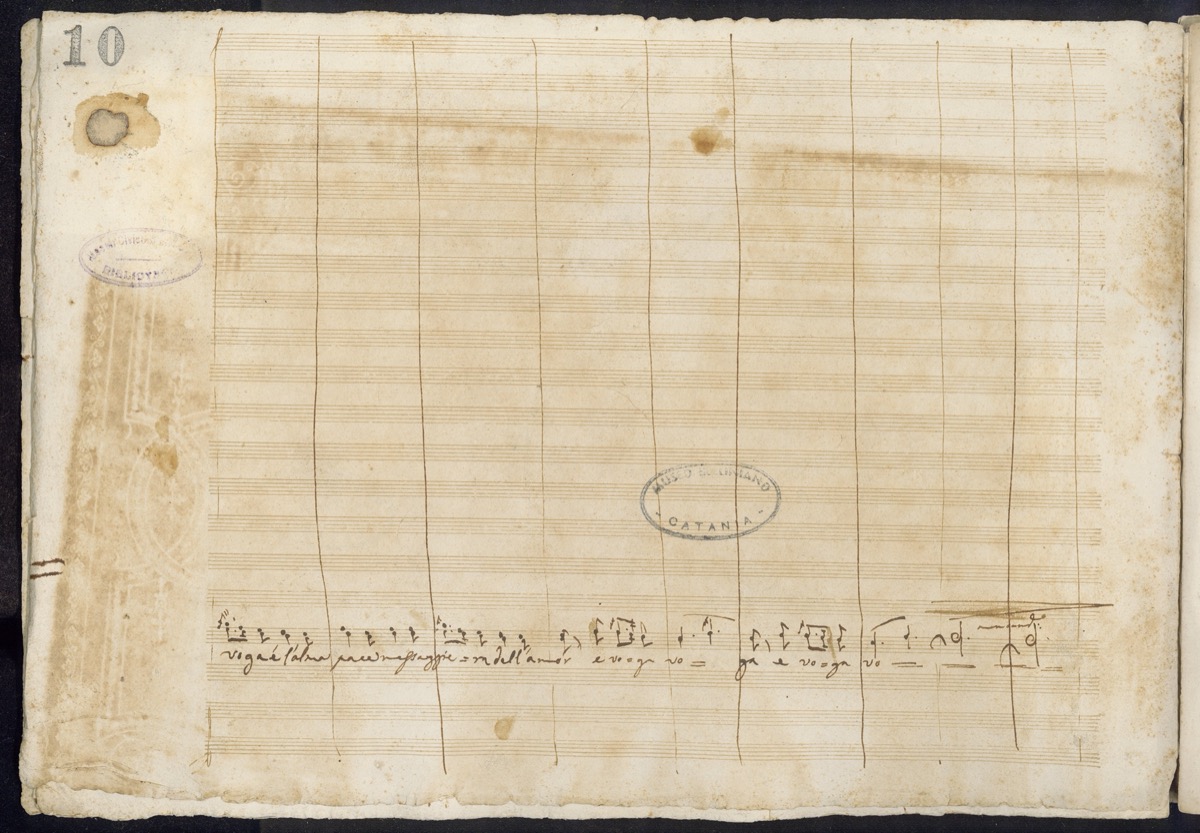 10
BIBLIOTECA
MUSEO BELLINIANO
CATANIA
voga è l'alma pace messaggie=ra dell'amor e vo=ga vo= ga e vo=ga vo